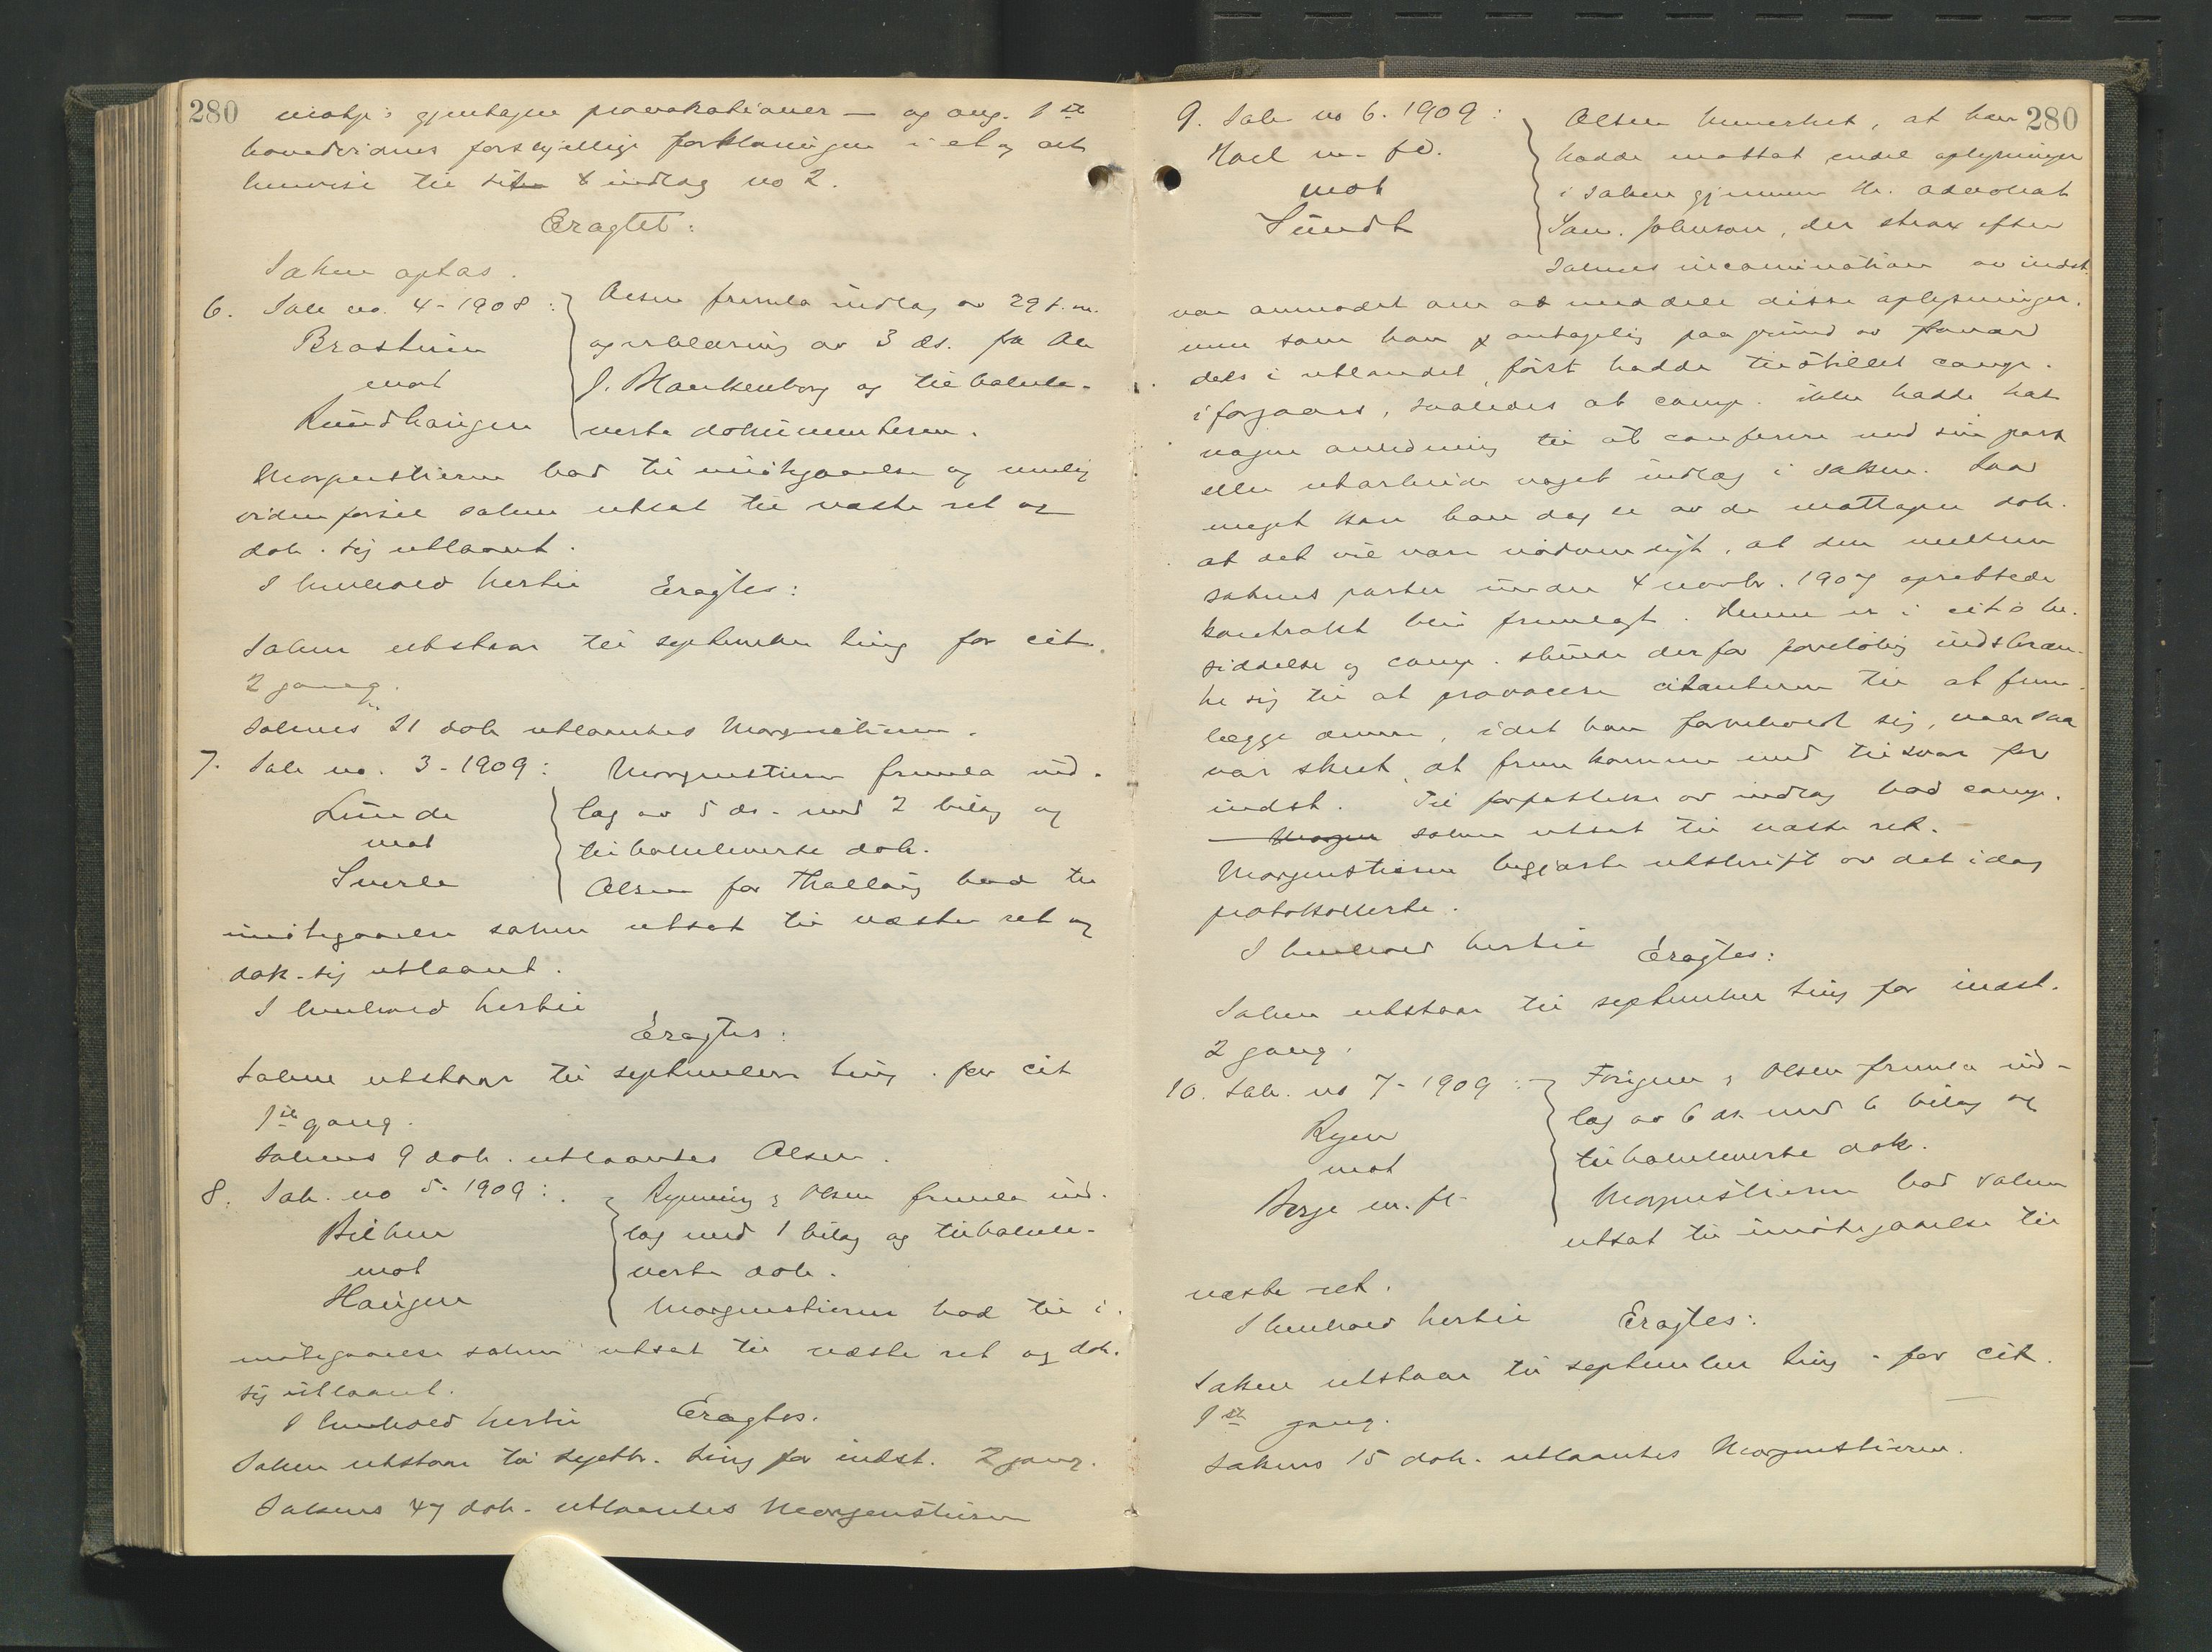 280
motp's gjentagne provokationer — og ang. 1ste
hovedvidnes forskjellige forklaringer i et og alt
henvise til sit indlag no 2.
Eragtet:
Saken optas.
6. Sak no. 4-1908:
Brastuin
mot
Rundhaugen
Olsen fremla indlag av 29 f.m.
og erklæring av 3 ds. fra
J. Blankenborg og tilbakele-
verte dokumenterne.
Morgenstierne bad til imøtegaaelse og mulig
videre forsæt saken utsat til næste ret og
dok. sig utlaant.
I henhold hertil Eragtes:
Saken utstaar til september ting for cit.
2 gang.
Sakens 21 dok utlaantes Morgenstierne.
7. Sak no. 3-1909:
Lunde
mot
Sverle
Morgenstierne fremla ind-
lag av 5 ds. med 2 bilag og
tilbakeleverte dok.
Olsen for Thallaug bad til
imøtegaaelse saken utsat til næste ret og
dok. sig utlaant.
I henhold hertil
Eragtes:
Saken utstaar til september ting for cit
1ste gang.
Sakens 9 dok. utlaantes Olsen.
8. Sak. no 5-1909:
Bilben
mot
Haugen
Rynning & Olsen fremla ind-
lag med 1 bilag og tilbakele-
verte dok.
Morgenstierne bad til i-
møtegaaelse saken utsat til næste ret og dok.
sig utlaant.
I henhold hertil Eragtes.
Saken utstaar til septbr. ting for indst. 2 gang.
Sakens 47 dok. utlaantes Morgenstierne
280
9. Sak no 6. 1909:
Hoel m. fl.
mot
Sundt
Olsen bemerket, at han
hadde mottat endel oplysninger
i saken gjennem Hr. advokat
Sam. Johnson, der strax efter
sakens incamination av indst.
var anmodet om at meddele disse oplysninger.
men som han antagelig paa grund av
dels i utlandet, først hadde tilstillet comp.
i forgaars, saaledes at comp. ikke hadde hat
nogen anledning til at conferere med sin part
eller utarbeide noget indlæg i saken. Saa
meget kan han dog se av de mottagne dok.
at det vil være nødvendigt, at den mellem
sakens parter under 4 novbr. 1907 oprettede
kontrakt blir fremlagt. Denne er i cit's be-
siddelse og comp. skulde derfor foreløbig indskræn-
ke sig til at provocere citanterne til at frem-
lægge denne, idet han forbeholdt sig, naar saa
var skeet, at fremkomme med tilsvar for
indst. Til forfattelse av indlag bad comp.
Morgen saken utsat til næste ret.
Morgenstierne begjærte utskrift av det idag
protokollerte.
I henhold hertil Eragtes:
Saken utstaar til september ting for indst.
2 gang.
10. Sak. no 7-1909:
Ryen
mot
Berge m. fl.
Frisgun & Olsen fremla ind-
lag av 6 ds. med 6 bilag og
tilbakeleverte dok.
Morgenstierne bad saken
utsat til imøtegaaelse til
næste ret.
I henhold hertil Eragtes:
Saken utstaar til september ting for cit.
1ste gang.
Sakens 15 dok. utlaantes Morgenstierne.